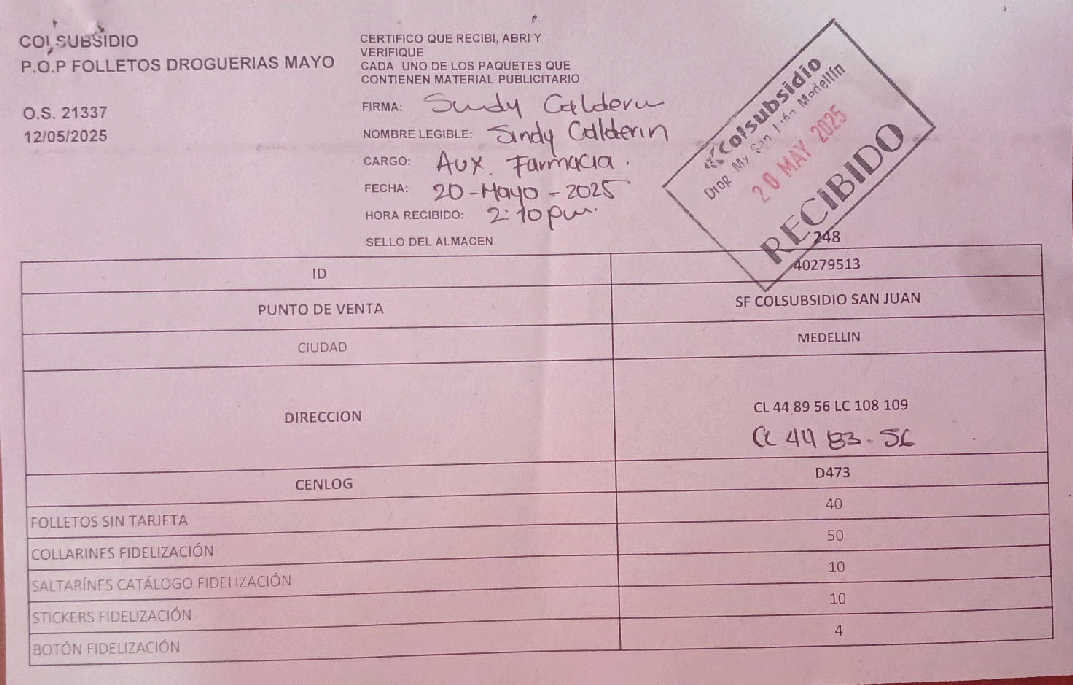 COLSUBSIDIO
P.O.P FOLLETOS DROGUERIAS MAYO
O.S. 21337
12/05/2025
CERTIFICO QUE RECIBI, ABRI Y
VERIFIQUE
CADA UNO DE LOS PAQUETES QUE
CONTIENEN MATERIAL PUBLICITARIO
FIRMA: Sindy Calderin
NOMBRE LEGIBLE: Sindy Calderin
CARGO: Aux. Farmacia.
FECHA: 20-Mayo-2025
HORA RECIBIDO: 2:10 pm.
SELLO DEL ALMACEN
Colsubsidio
Drog. My San Juan Medellín
20 MAY 2025
RECIBIDO
248
ID 40279513
PUNTO DE VENTA SF COLSUBSIDIO SAN JUAN
CIUDAD MEDELLIN
DIRECCION CL 44 89 56 LC 108 109
CL 44 83-56
CENLOG D473
FOLLETOS SIN TARJETA 40
COLLARINES FIDELIZACIÓN 50
SALTARÍNES CATÁLOGO FIDELIZACIÓN 10
STICKERS FIDELIZACIÓN 10
BOTÓN FIDELIZACIÓN 4